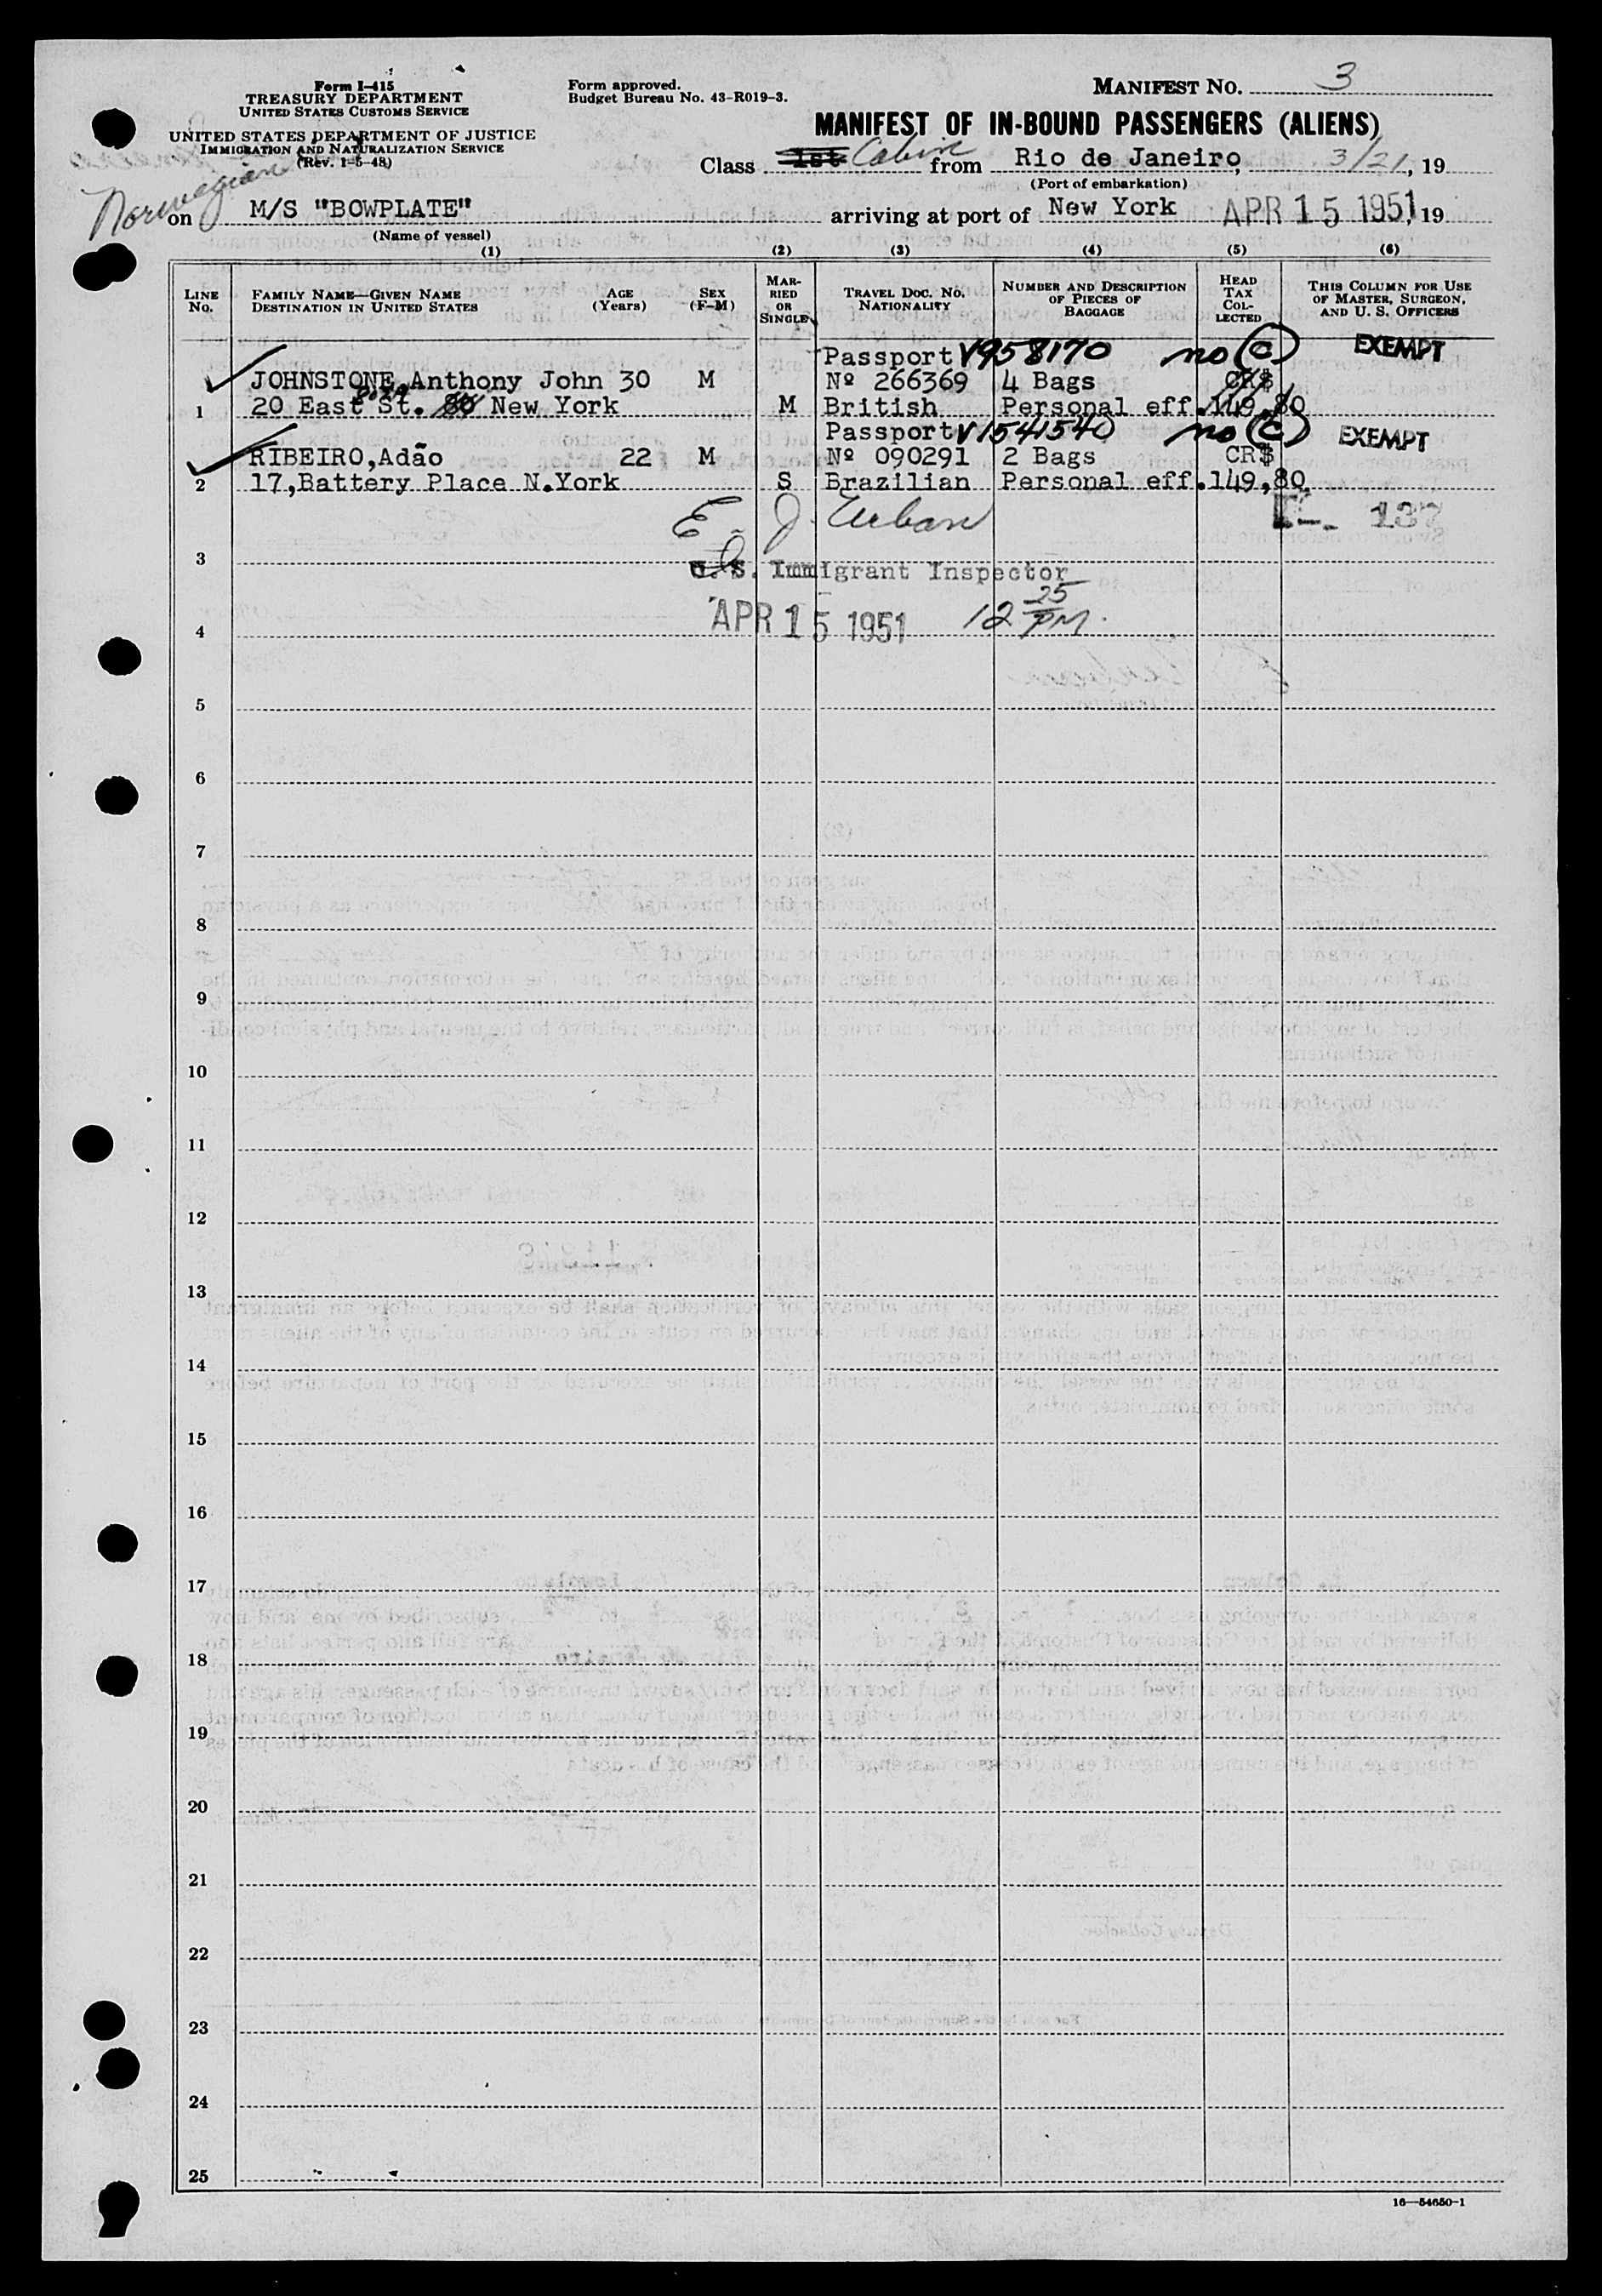 Form I-415
TREASURY DEPARTMENT
UNITED STATES CUSTOMS SERVICE
UNITED STATES DEPARTMENT OF JUSTICE
IMMIGRATION AND NATURALIZATION SERVICE
(Rev. 1-5-48)
Form approved.
Budget Bureau No. 43-R019-3.
MANIFEST NO. 3
MANIFEST OF IN-BOUND PASSENGERS (ALIENS)
Class 1st Cabin from Rio de Janeiro, 3/21, 19
(Port of embarkation)
Norwegian
on M/S "BOWPLATE" arriving at port of New York APR 15 1951, 19
(Name of vessel)
(1) (2) (3) (4) (5) (6)
LINE No. FAMILY NAME—GIVEN NAME DESTINATION IN UNITED STATES AGE (Years) SEX (F–M) MARRIED OR SINGLE TRAVEL DOC. NO. NATIONALITY NUMBER AND DESCRIPTION OF PIECES OF BAGGAGE HEAD TAX COLLECTED THIS COLUMN FOR USE OF MASTER, SURGEON, AND U. S. OFFICERS
Passport V958170 no (C) EXEMPT
JOHNSTONE, Anthony John 30 M Nº 266369 4 Bags CR$
1 20 East St. 80 New York M British Personal eff. 149,80
Passport V1541540 no (C) EXEMPT
RIBEIRO, Adão 22 M Nº 090291 2 Bags CR$
2 17, Battery Place N.York S Brazilian Personal eff. 149,80
E. J. Urban 137
3 U. S. Immigrant Inspector
4 APR 15 1951 12 25 PM.
5
6
7
8
9
10
11
12
13
14
15
16
17
18
19
20
21
22
23
24
25
16—54650-1